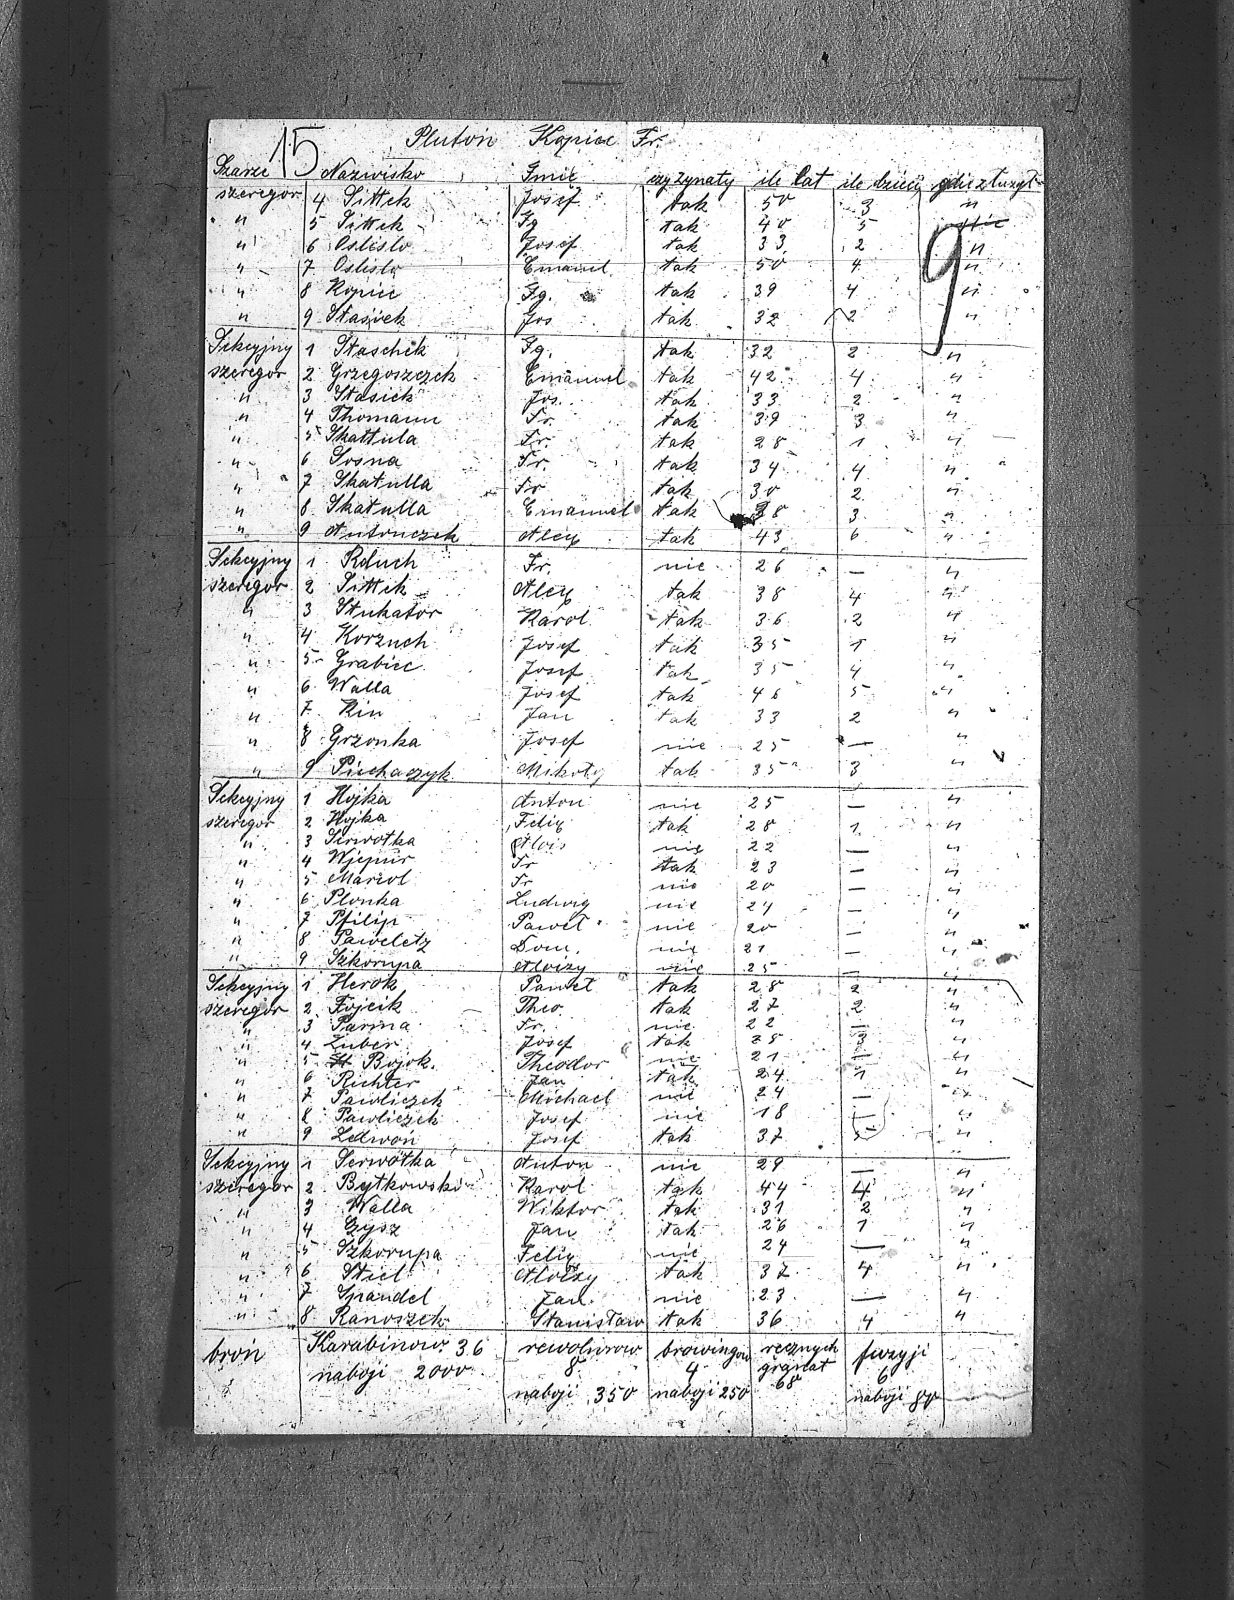 15 Plutoń Kopiec Fr.
Szarże Nazwisko Imie czy żynaty ile lat ile dzieci
szeregor 4 Sittek Josef tak 50 3 "
" 5 Sittek Ig tak 40 5
" 6 Oslislo Josef tak 33 2 "
" 7 Oslislo Emanuel tak 50 4 "
" 8 Kopiec Ig. tak 39 4 "
" 9 Stasiek Jos tak 32 2 "
9
Sekcyjny 1 Staschek Ig. tak 32 2 "
szeregor 2 Grzegoszczek Emanuel tak 42 4 "
" 3 Stasiek Jos. tak 33 2 "
" 4 Thomann Fr. tak 39 3 "
" 5 Skattula Fr. tak 28 1 "
" 6 Sosna Fr. tak 34 4 "
" 7 Skatulla Fr tak 30 2 "
" 8 Skatulla Emanuel tak 38 3 "
" 9 Antonczek Alex tak 43 6 "
Sekcyjny 1 Rduch Fr. nie 26 — "
szeregor 2 Sittek Alex tak 38 4 "
" 3 Stukator Karol tak 36 2 "
" 4 Korzuch Josef tak 35 1 "
" 5 Grabiec Josef tak 35 4 "
" 6 Walla Josef tak 46 5 "
" 7 Kin Jan tak 33 2 "
" 8 Grzonka Josef nie 25 — "
" 9 Piechaczyk Mikoły tak 35 3 "
Sekcyjny 1 Hojka Anton nie 25 — "
szeregor 2 Hojka Felix tak 28 1 "
" 3 Serwotka Alois nie 22 — "
" 4 Fr tak 23 — "
" 5 Marzol Fr nie 20 — "
" 6 Plonka Ludwig nie 24 — "
" 7 Pfilip Paweł nie 20 — "
" 8 Paweletz Dom. nie 21 — "
" 9 Szkorupa Aloizy nie 25 — "
Sekcyjny 1 Herok Paweł tak 28 2 "
szeregor 2 Fojcik Theo tak 27 2 "
" 3 Parma Fr. nie 22 — "
" 4 Zuber Josef tak 3 "
" 5 Bojok. Theodor nie 21 — "
" 6 Richter Jan tak 24 1 "
" 7 Pawliczek Michael nie 24 — "
" 8 Pawliczek Josef nie 18 — "
" 9 Ledwoń Josef tak 37 "
Sekcyjny 1 Serwotka Anton nie 29 — "
szeregor 2 Bytkowski Karol tak 44 4 "
" 3 Walla Wiktor tak 31 2 "
" 4 Zysz Jan tak 26 1 "
" 5 Szkorupa Felix nie 24 — "
" 6 Stiel Aloizy tak 37 4 "
" 7 Spandel Jan nie 23 — "
" 8 Ranoszek Stanisław tak 36 4 "
broń Karabinow 36 rewolwrow browingow recznych fuzyji
naboji 2000 8 4 granat 6
naboji 350 naboji 250 68 naboji